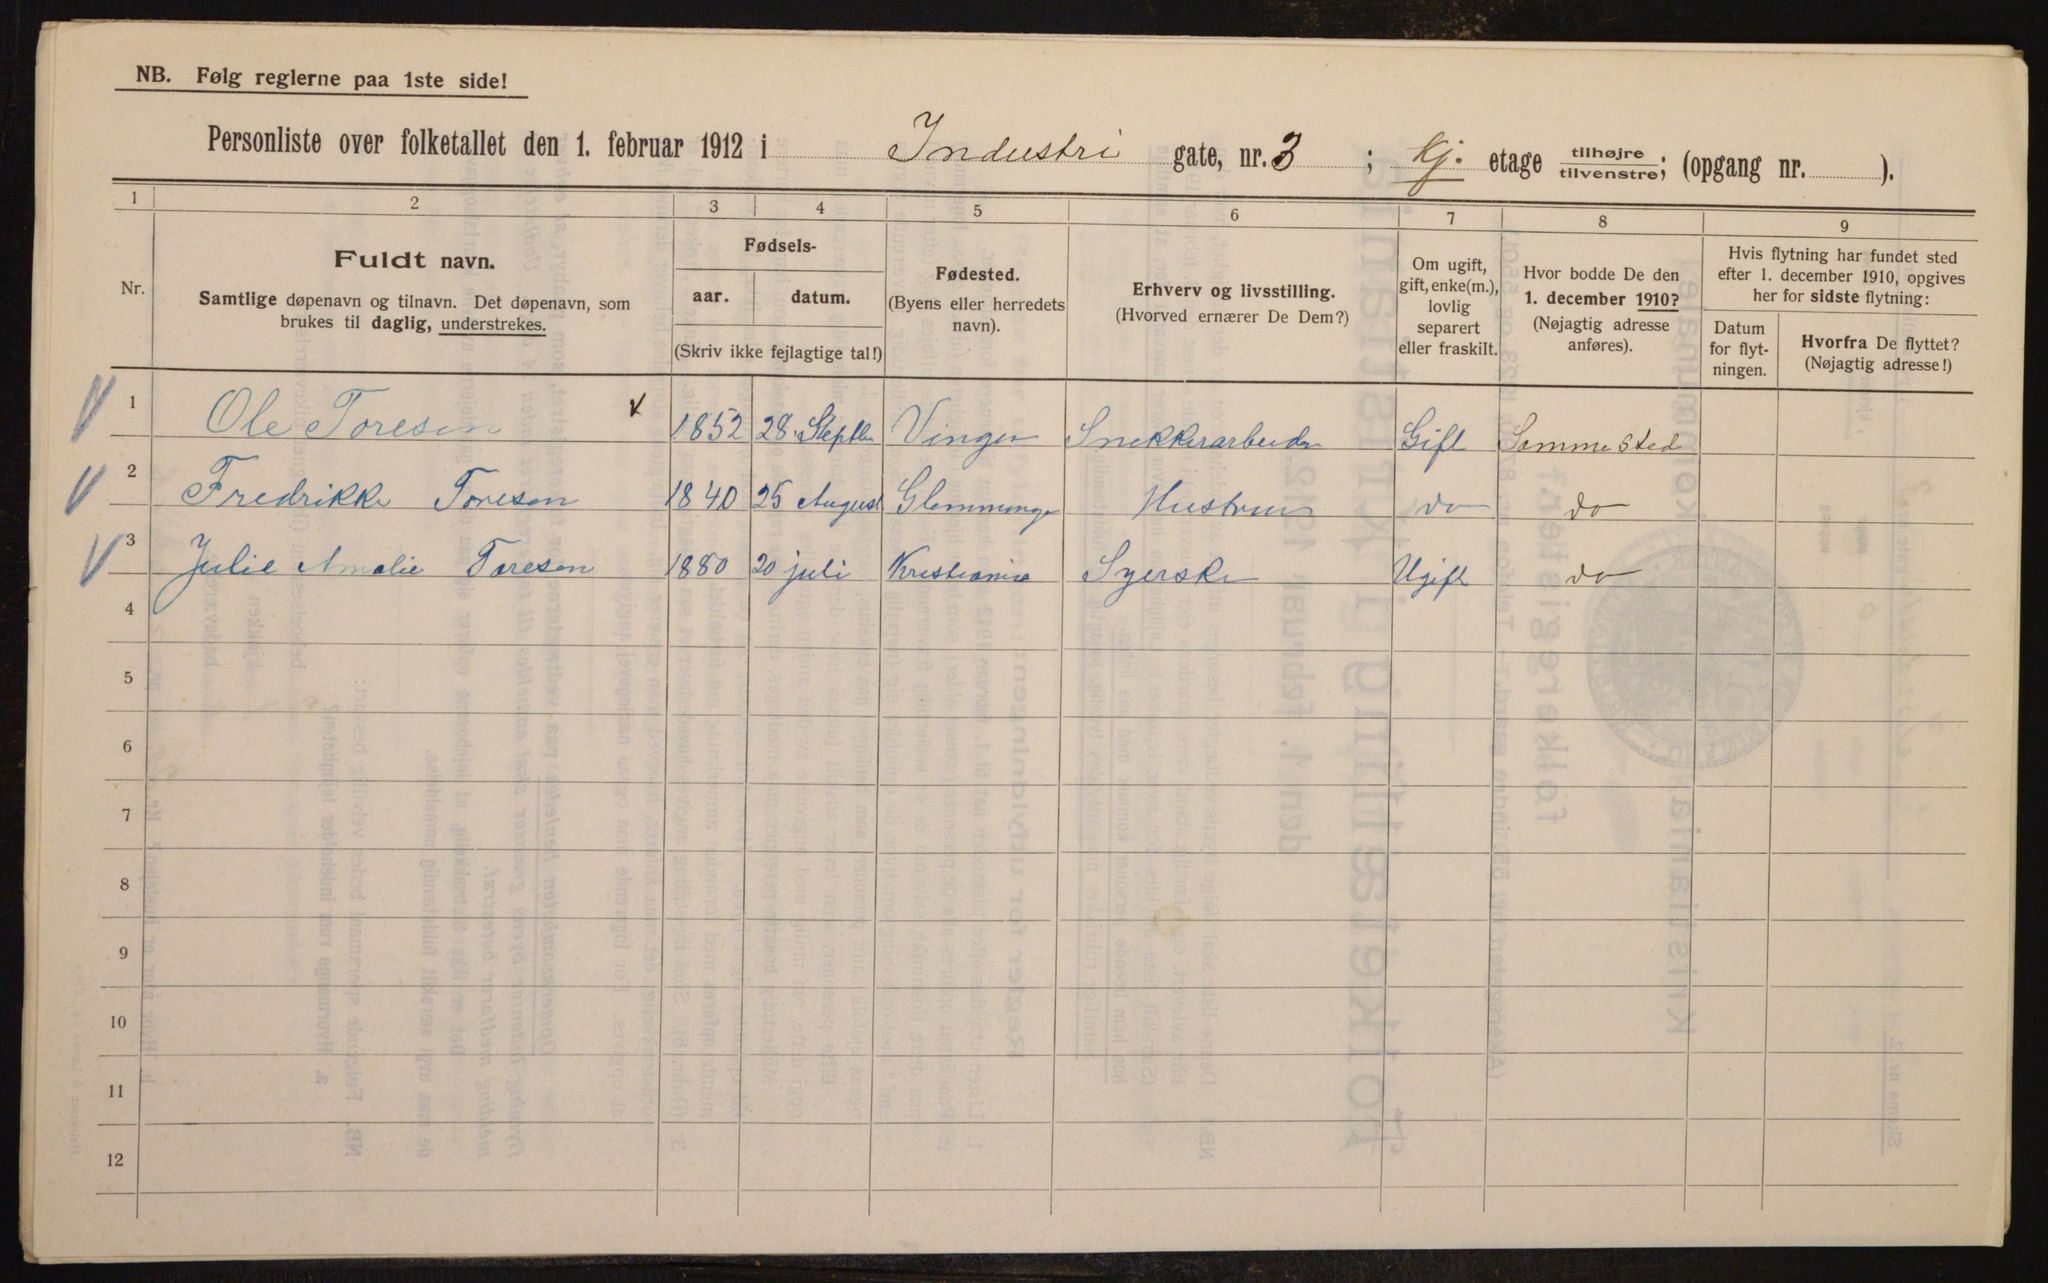 NB. Følg reglerne paa 1ste side!
Personliste over folketallet den 1. februar 1912 i Industri gate, nr. 3 ; Kj. etage tilhøjre/tilvenstre; (opgang nr. ).
1 2 3 4 5 6 7 8 9
Nr.
Fuldt navn.
Samtlige døpenavn og tilnavn. Det døpenavn, som
brukes til daglig, understrekes.
Fødsels-
aar. datum.
(Skriv ikke fejlagtige tal!)
Fødested.
(Byens eller herredets
navn).
Erhverv og livsstilling.
(Hvorved ernærer De Dem?)
Om ugift,
gift, enke(m.),
lovlig
separert
eller fraskilt.
Hvor bodde De den
1. december 1910?
(Nøjagtig adresse
anføres).
Hvis flytning har fundet sted
efter 1. december 1910, opgives
her for sidste flytning:
Datum
for flyt-
ningen.
Hvorfra De flyttet?
(Nøjagtig adresse!)
1 Ole Toresen 1852 28 Septbr Vinger Snekkerarbeider Gift Samme sted
2 Fredrikke Toresen 1840 25 August Glemminge Hustru do do
3 Julie Amalie Toresen 1880 20 juli Kristiania Syerske Ugift do
4
5
6
7
8
9
10
11
12